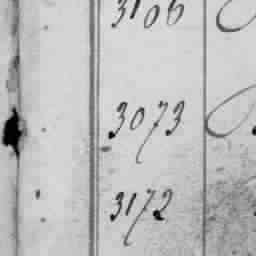 3106
3073
3172